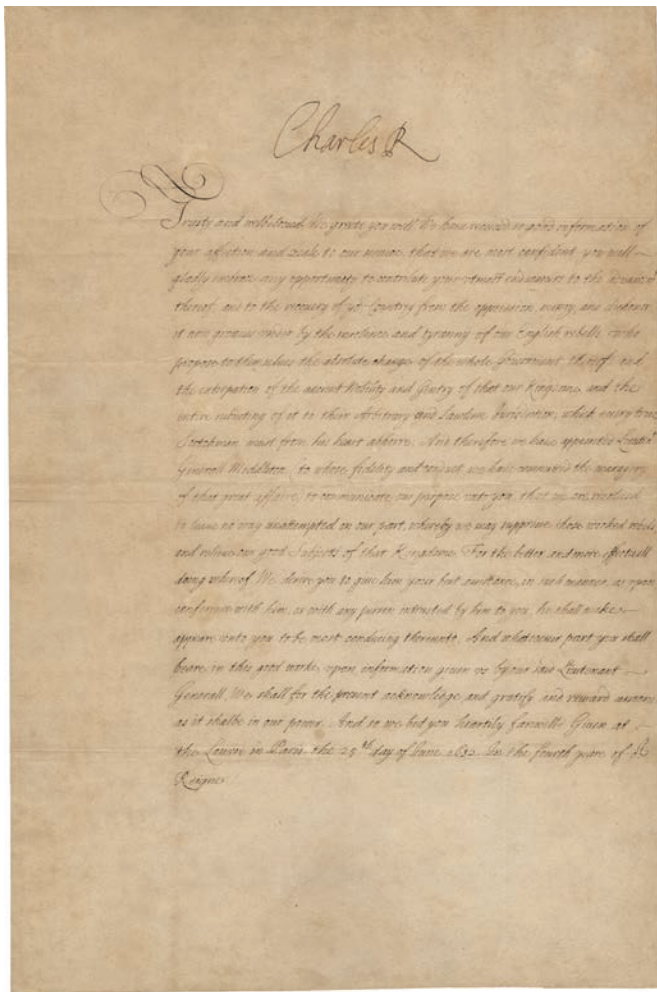 Charles R
Trusty and welbeloved We greete you well. We have received so good information of
your affection and zeale to our service, that we are most confident you will
gladly embrace any opportunity to contribute your utmost endeavours to the advancemt
thereof, and to the recovery of yor Country from the oppression, misery, and dishonor
it now groanes under by the insolence and tyranny of our English rebells, who
propose to themselves the absolute change of the whole Goverment thereof and
the extirpation of the ancient Nobility and Gentry of that our Kingdome, and the
entire subjecting of it to their Arbitrary and Lawless Jurisdiction, which every true
Scotchman must from his heart abhorre. And therefore we have appointed Lieutent
Generall Middleton to whose fidelity and conduct we have committed the managing
of that great affaire, to communicate our purpose unto you, that we are resolved
to leave no way unattempted on our part, whereby we may suppresse those wicked rebells
and relieve our good Subjects of that Kingdome. For the better and more effectuall
doing whereof We desire you to give him your best assistance, in such manner, as upon
conference with him, or with any person intrusted by him to you, he shall make
appeare unto you to be most conducing thereunto. And whatsoever part you shall
beare in this good worke, upon information given us by our said Lieutenant
Generall, We shall for the present acknowledge, and gratify and reward
as it shalbe in our power. And so we bid you heartily farewell. Given at
the Louvre in Paris the 25th day of June 1652. In the fourth yeare of
Reigne